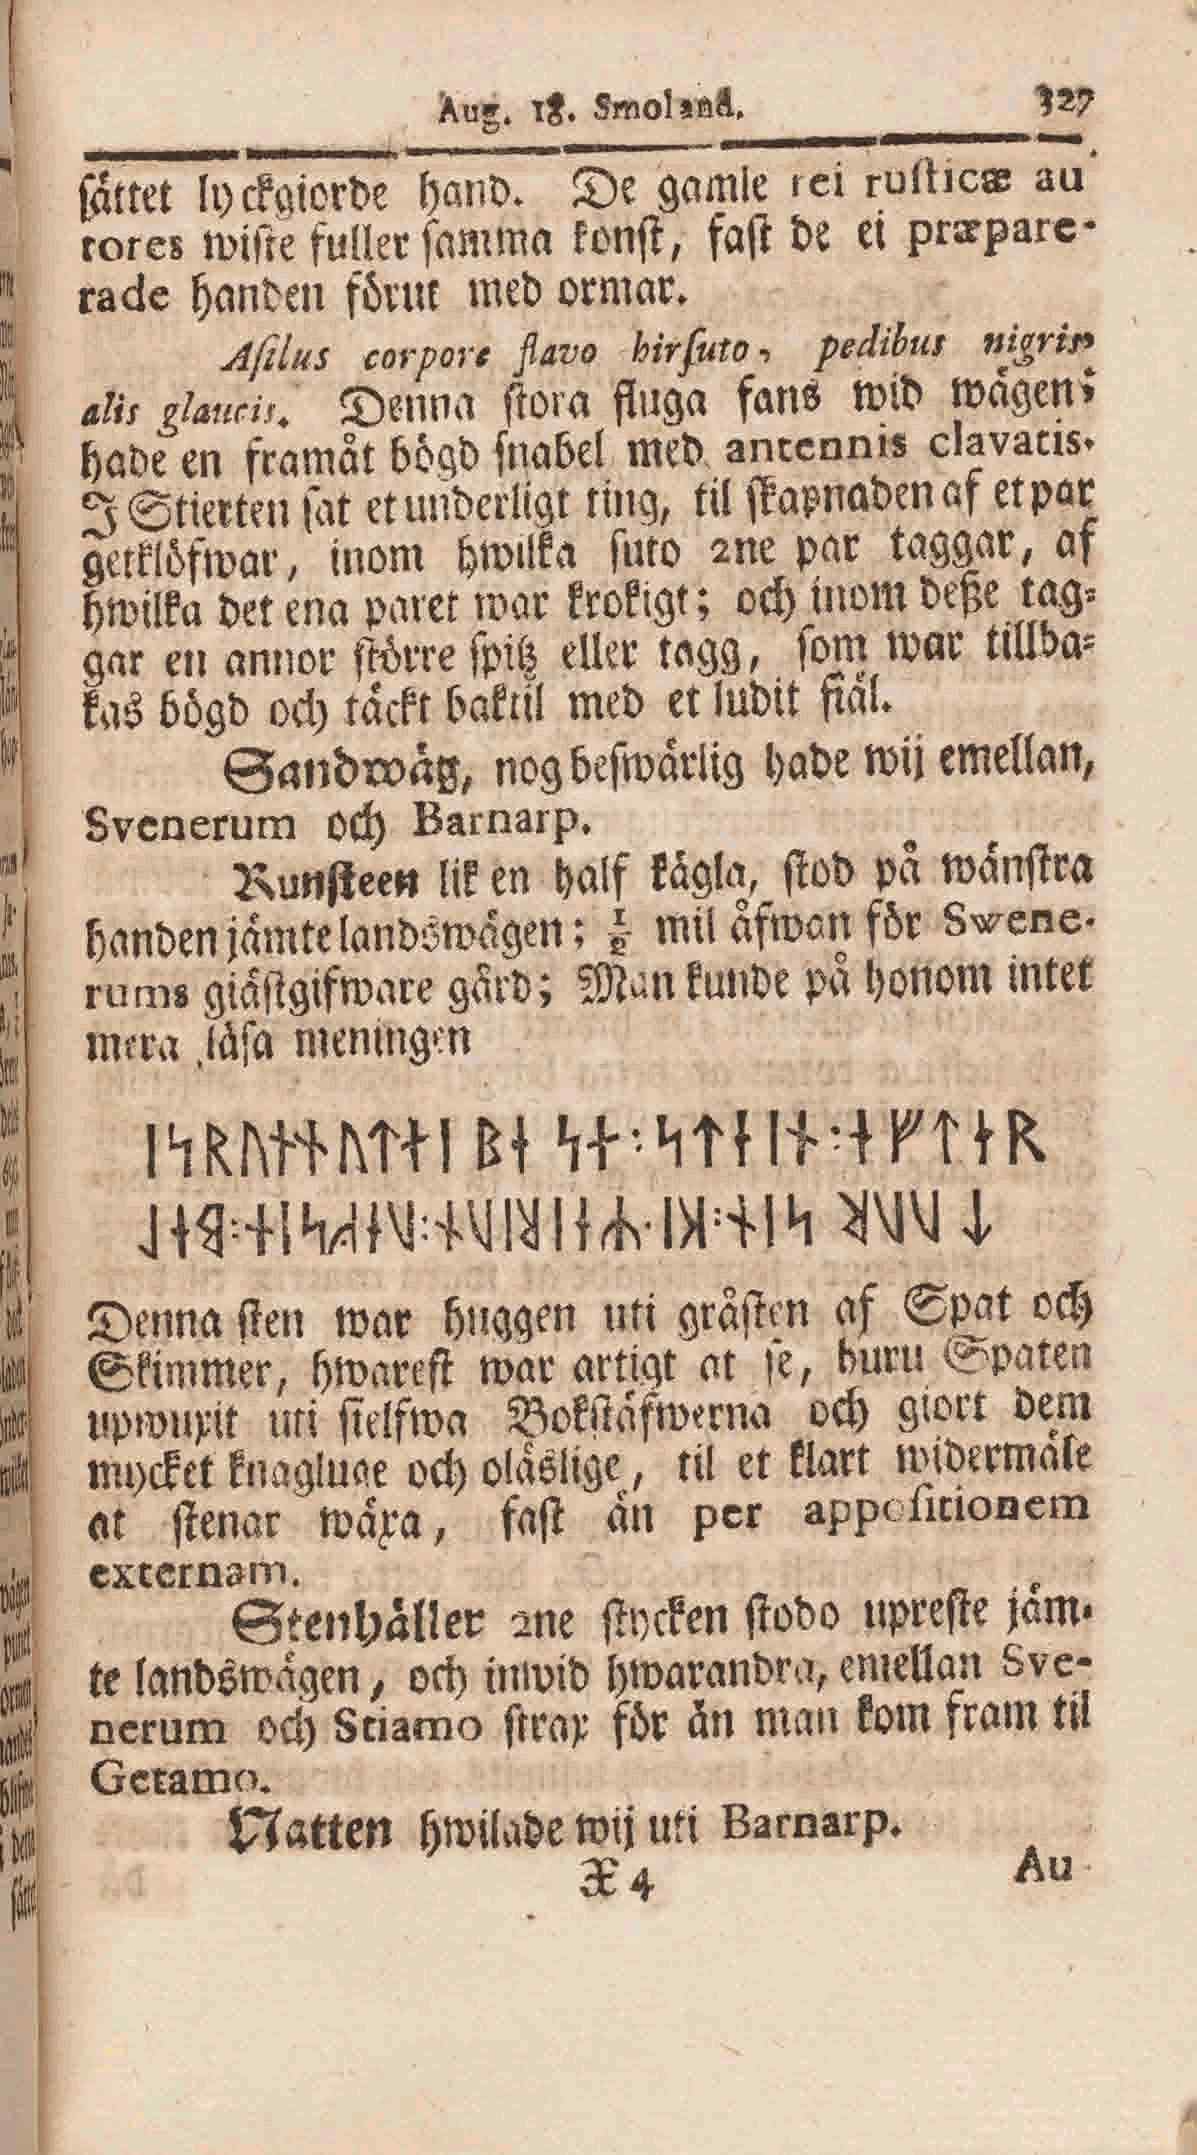 Aug. 18. Smoland. 327
sättet lyckgiorde hand. De gamle rei rusticæ au
tores wiste fuller samma konst, fast de ei præpare-
rade handen förut med ormar.
Asilus corpore flavo hirsuto, pedibus nigris
alis glaucis. Denna stora fluga fans wid wägen;
hade en framåt bögd snabel med antennis clavatis.
I Stierten sat et underligt ting, til skapnaden af et par
getklöfwar, inom hwilka suto 2ne par taggar, af
hwilka det ena paret war krokigt; och inom desze tag-
gar en annor större spitz eller tagg, som war tillba-
kas bögd och täckt baktil med et ludit fiäl.
Sandwäg, nog beswärlig hade wij emellan,
Svenerum och Barnarp.
Runsteen lik en half kägla, stod på wänstra
handen jämte landswägen; ½ mil åfwan för Swene-
rums giästgifware gård; Man kunde på honom intet
mera läsa meningen
ᛁᛋᚱᚢᚾᚾᚢᛏᚾᛁ ᛒᚾ ᛋᚾ:ᛋᛏᚾᛁᚾ:ᚾᚠᛏᚾᚱ
Denna sten war huggen uti gråsten af Spat och
Skimmer, hwarest war artigt at se, huru Spaten
upwuxit uti sielfwa Bokstäfwerna och giort dem
mycket knagluge och oläslige, til et klart widermäle
at stenar wäxa, fast än per appositionem
externam.
Stenhäller 2ne stycken stodo upreste jäm-
te landswägen, och inwid hwarandra, emellan Sve-
nerum och Stiamo strax för än man kom fram til
Getamo.
Natten hwilade wij uti Barnarp.
X 4 Au